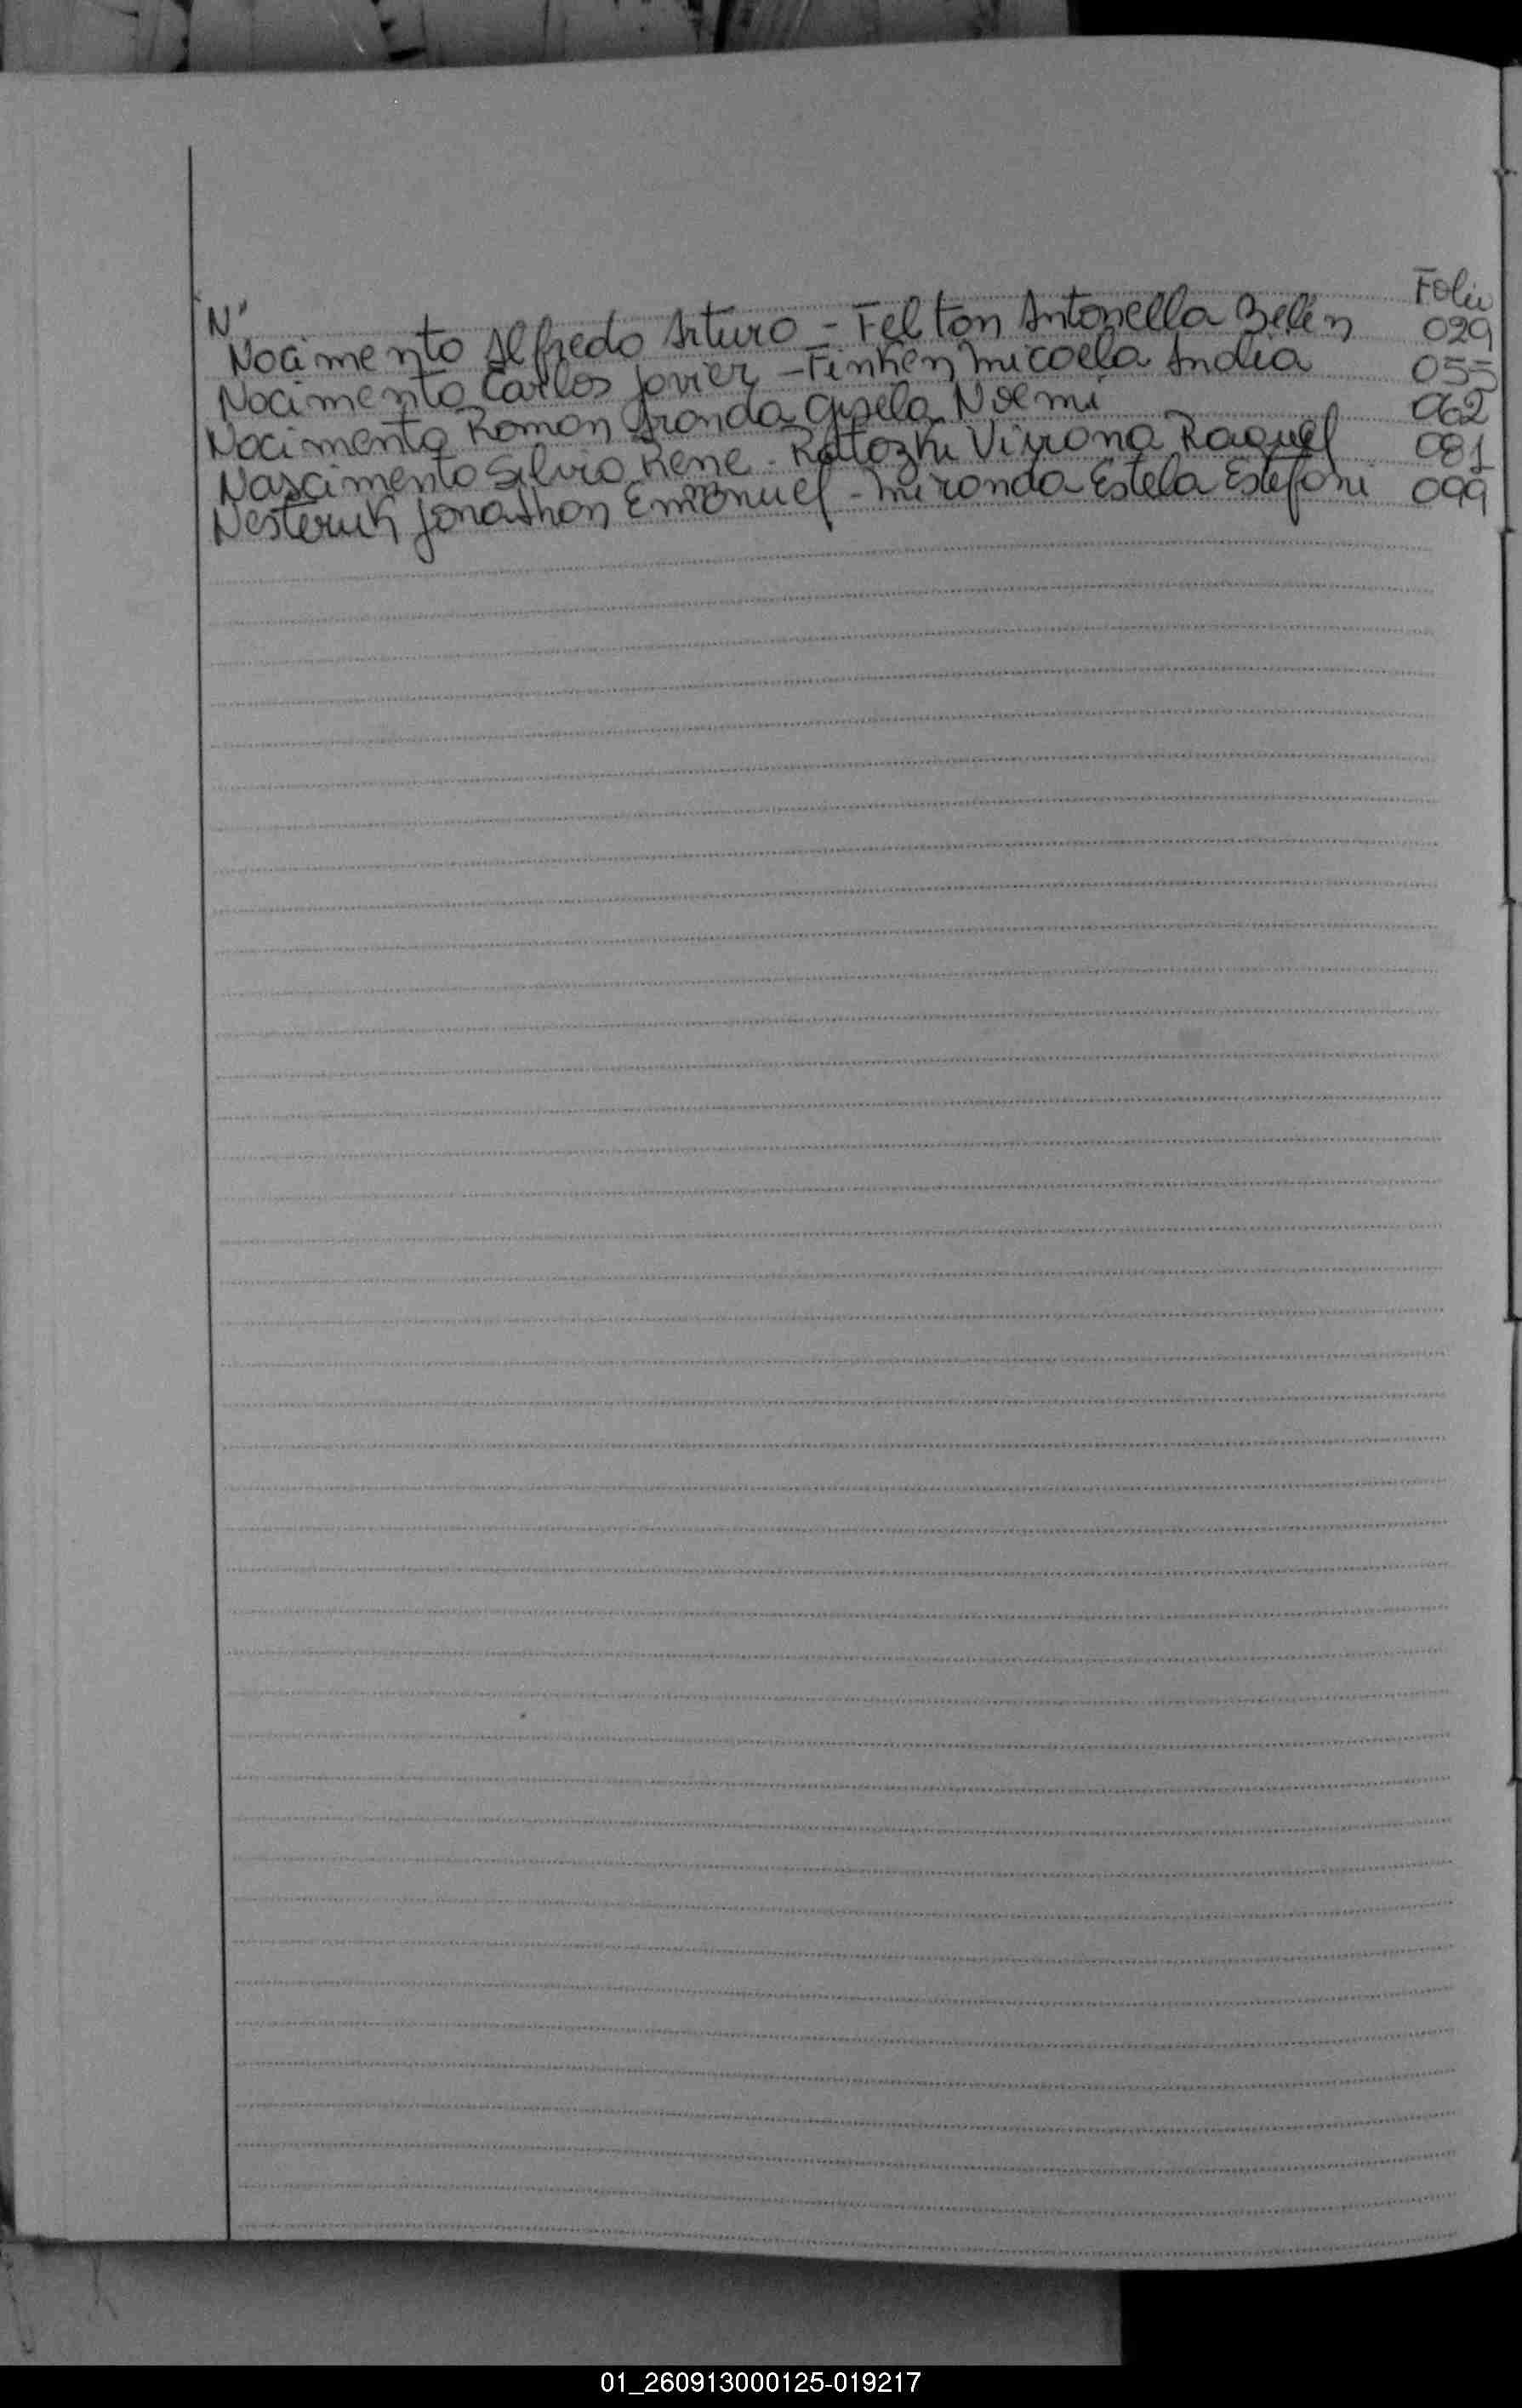 N"
Folio
Nacimento Alfredo Arturo - Felton Antonella Belén 029
Nacimento Carlos Javier - Finken Micaela India 055
Nacimento Roman Aranda Gisela Noemi 062
Nascimento Silvio Rene - Ratozki Viviana Raquel 081
Nesteruk Jonathan Emanuel - Miranda Estela Estefani 099
01_260913000125-019217